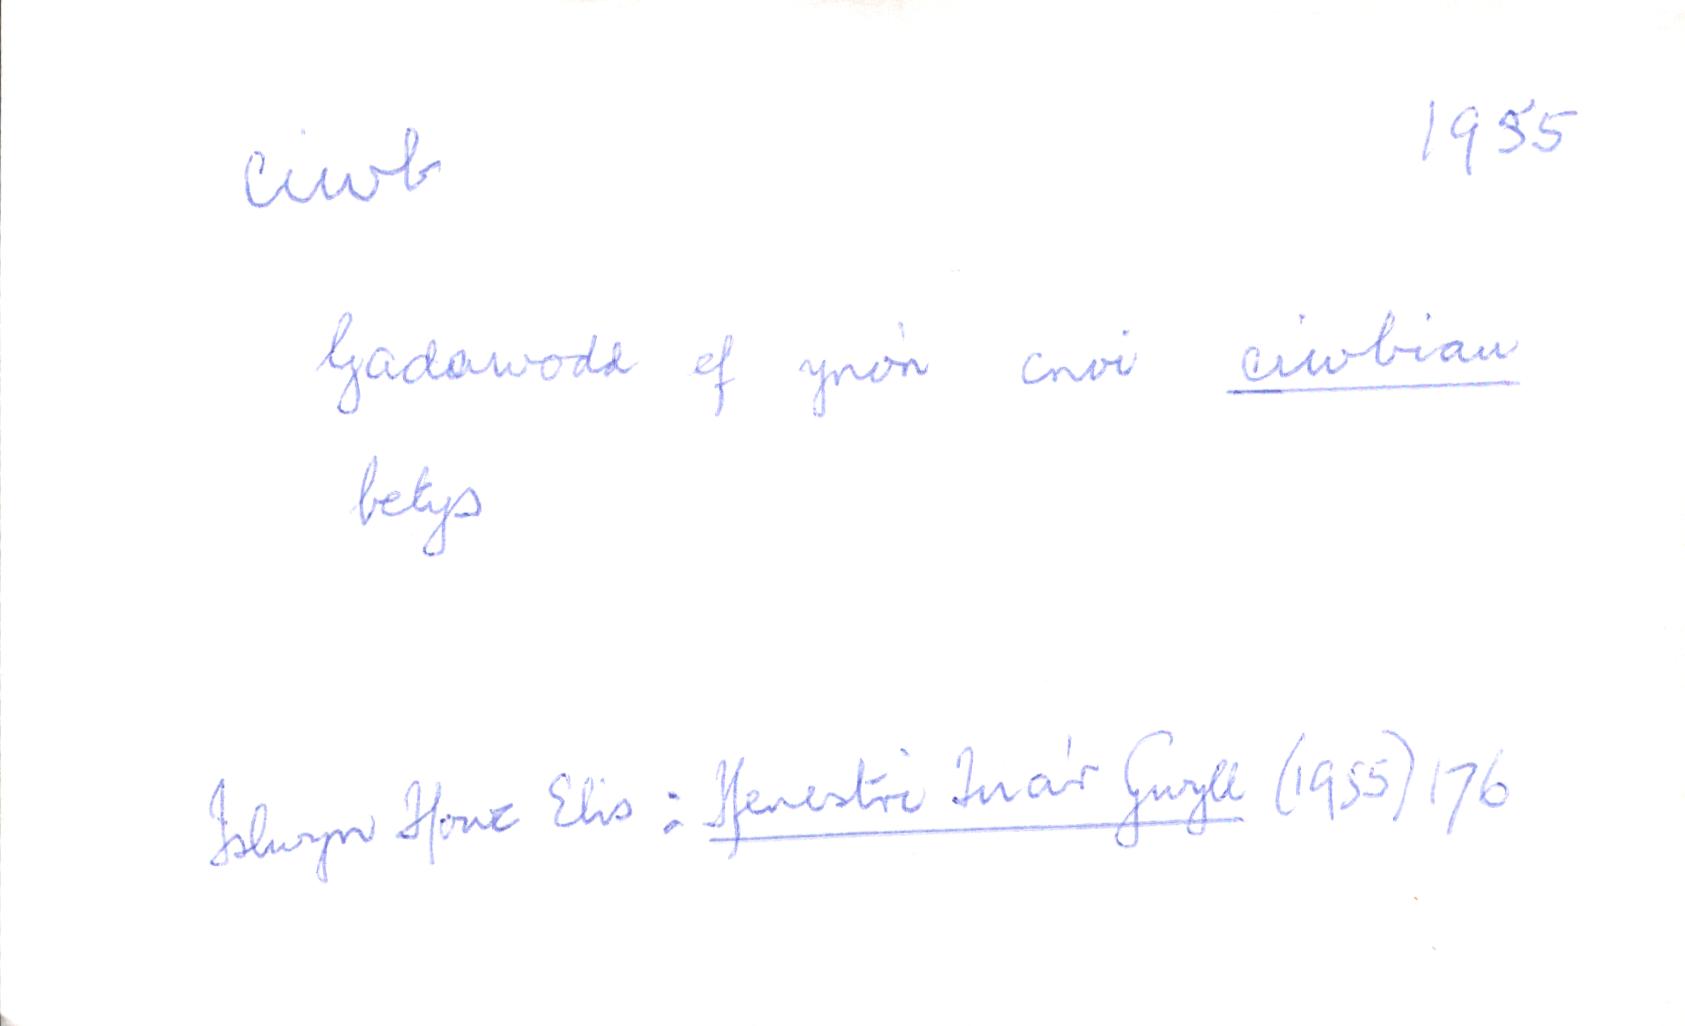 ciwb 1955
Gadawodd ef yno'n cnoi ciwbian
betys
Islwyn Ffowc Elis : Ffenestri Tua'r Gwyll (1955) 176